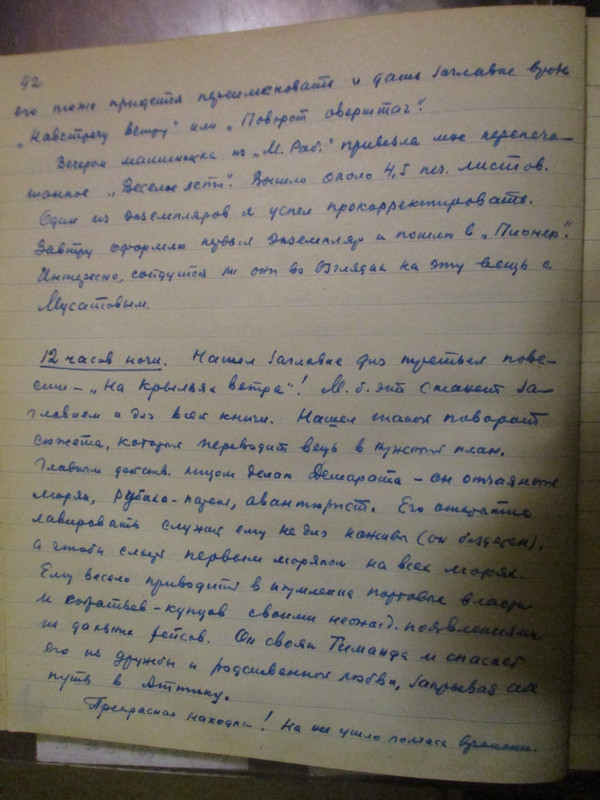 92
его тоже придется переименовать и дать заглавие вроде
„Навстречу ветру" или „Поворот оверштаг".
Вечером машинистка из „М. Раб." привезла мое перепеча-
танное „Веселое лето". Вышло около 4,5 печ. листов.
Один из экземпляров я успел прокорректировать.
Завтра оформлю первый экземпляр и пошлю в „Пионер".
Интересно, сойдутся ли они во взглядах на эту вещь с
Мусатовым.
12 часов ночи. Нашел заглавие для третьей пове-
сти - „На крыльях ветра"! М. б. это станет за-
главием и для всей книги. Нашел такой поворот
сюжета, который переводит вещь в нужный план.
Главным действ. лицом делаю Демарата - он отчаянный
моряк, рубака-парень, авантюрист. Его открытие
лавировать служит ему не для наживы (он бездетен),
а чтобы слыть первым моряком на всех морях.
Ему весело приводить в изумление портовые власти
и собратьев-купцов своими неожид. появлениями
из дальних рейсов. Он свояк Тиманда и спасает
его из дружбы и родственной любви, закрывая себе
путь в Аттику.
Прекрасная находка! На нее ушло полчаса времени.